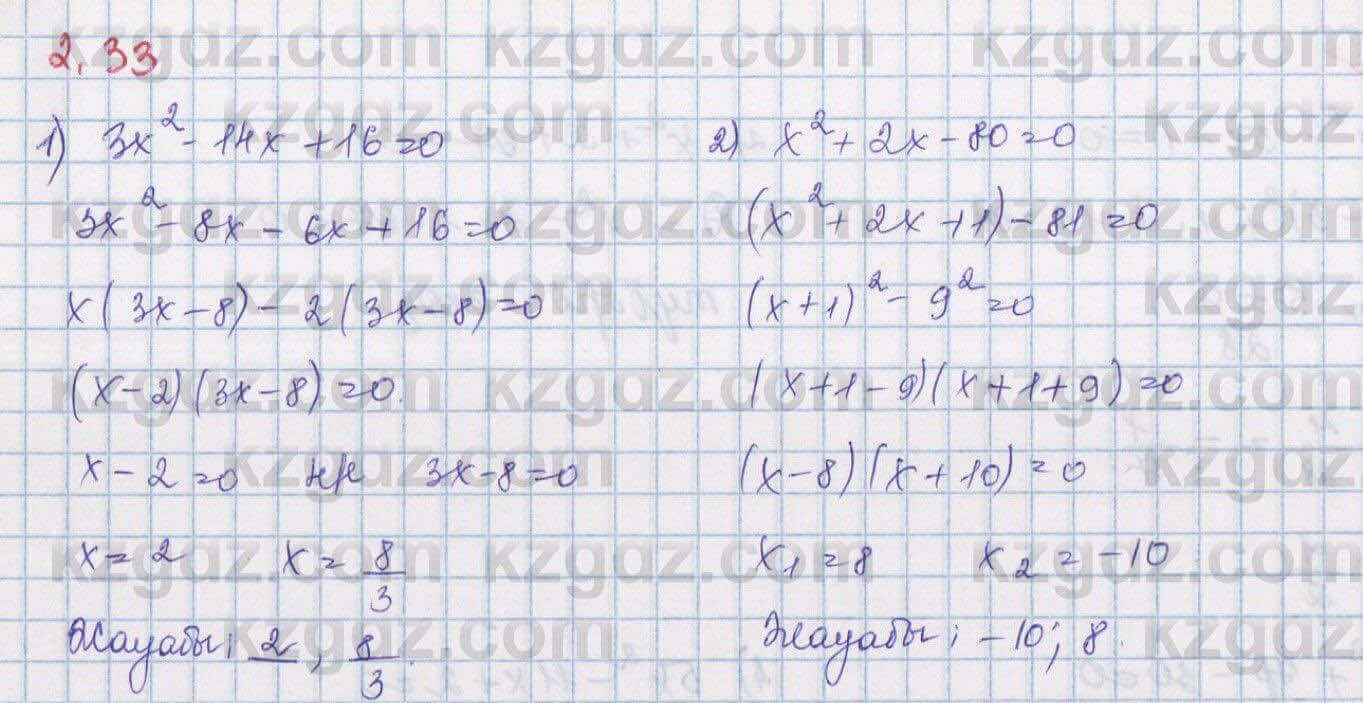 2.33
1) 3x² - 14x + 16 = 0
3x² - 8x - 6x + 16 = 0
x(3x - 8) - 2(3x - 8) = 0
(x - 2)(3x - 8) = 0.
x - 2 = 0 н/е 3x - 8 = 0
x = 2 x = 8/3
Жауабы: 2, 8/3.
2) x² + 2x - 80 = 0
(x² + 2x + 1) - 81 = 0
(x + 1)² - 9² = 0
(x + 1 - 9)(x + 1 + 9) = 0
(x - 8)(x + 10) = 0
x₁ = 8 x₂ = -10
Жауабы: -10; 8.
kzgdz.com